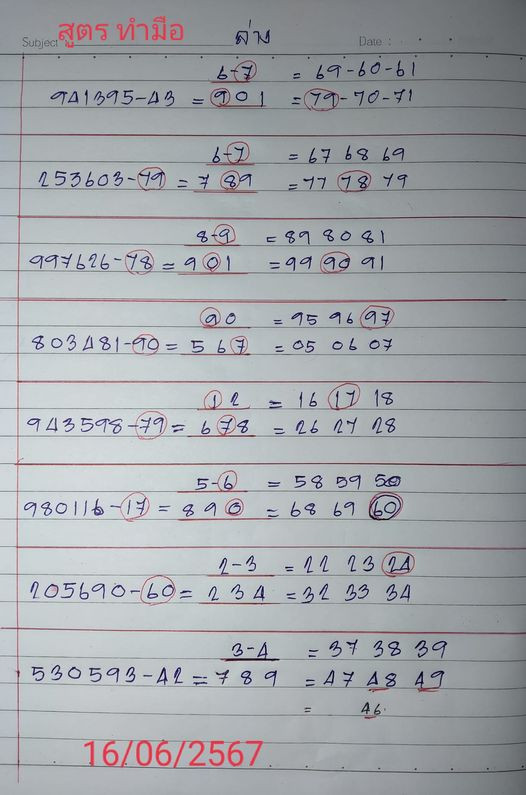 สูตร ทำมือ ล่าง
Subject Date :
6-7 = 69-60-61
941395-43 = 901 = 79-70-71
6-7 = 67 68 69
253603-79 = 789 = 77 78 79
8-9 = 89 80 81
997626-78 = 901 = 99 90 91
90 = 95 96 97
803481-90 = 567 = 05 06 07
12 = 16 17 18
943598-79 = 678 = 26 27 28
5-6 = 58 59 50
980116-17 = 890 = 68 69 60
2-3 = 22 23 24
205690-60 = 234 = 32 33 34
3-4 = 37 38 39
530593-42 = 789 = 47 48 49
= 46.
16/06/2567